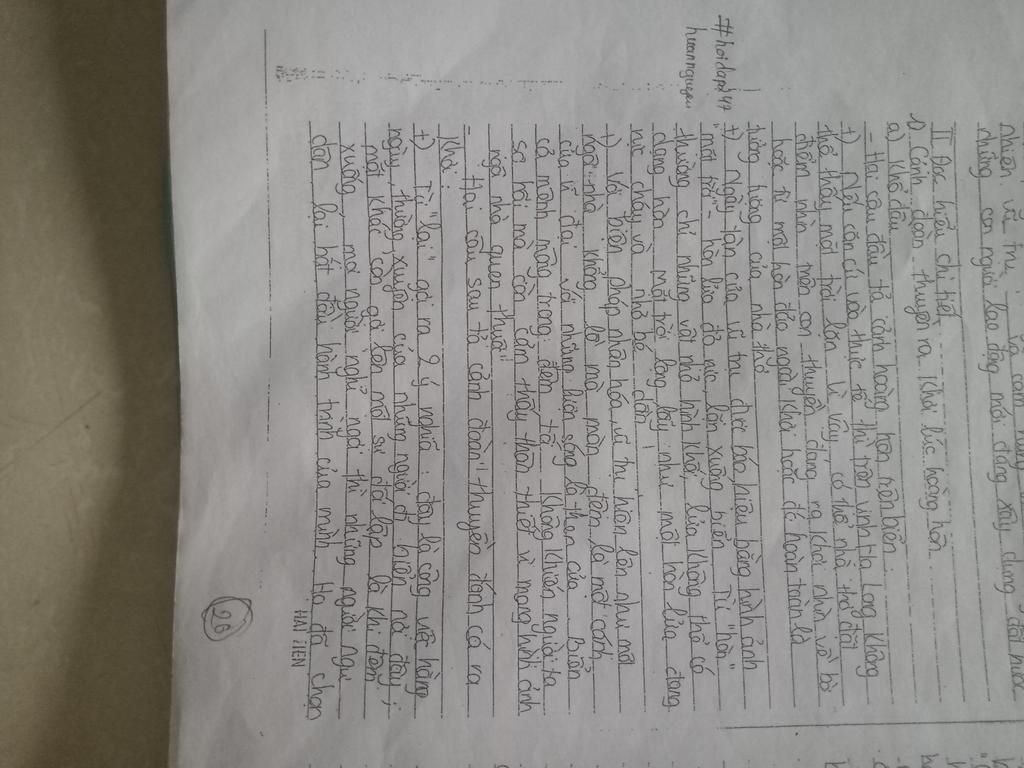 nhiên, vũ trụ và con
những con người lao động mới đang xây dựng đất nước
II Đọc hiểu chi tiết
1) Cảnh đoàn thuyền ra khơi lúc hoàng hôn
a) Khổ đầu
- Hai câu đầu tả cảnh hoàng hôn trên biển
+) Nếu căn cứ vào thực tế thì trên vịnh Hạ Long không
thể thấy mặt trời lặn. Vì vậy, có thể nhà thơ đặt
điểm nhìn trên con thuyền đang ra khơi nhìn về bờ
hoặc từ một hòn đảo ngoài khơi hoặc đó hoàn toàn là
tưởng tượng của nhà thơ
+) Ngày tàn của vũ trụ được báo hiệu bằng hình ảnh
mặt trời - hòn lửa đỏ rực lặn xuống biển. Từ "hòn"
thường chỉ những vật nhỏ hình khối, lửa không thể có
dạng hòn. mặt trời lộng lẫy như một hòn lửa đang
rực cháy và nhỏ bé dần
+) Với biện pháp nhân hóa, vũ trụ hiện lên như một
ngôi nhà khổng lồ mà màn đêm là một cánh
cửa vĩ đại với những lượn sóng là then cửa. Biển
cả mênh mông trong đêm tối không khiến người ta
sợ hãi mà còn cảm thấy thân thiết vì mang hình ảnh
ngôi nhà quen thuộc
- Hai câu sau tả cảnh đoàn thuyền đánh cá ra
khơi:
+) Từ "lại" gợi ra 2 ý nghĩa: đây là công việc hàng
ngày, thường xuyên của những người đi biển nơi đây;
mặt khác còn gợi lên một sự đối lập là khi đêm
xuống, mọi người nghỉ ngơi thì những người ngư
dân lại bắt đầu hành trình của mình. Họ đã chọn
HẢI TIẾN
26
#hoidap247